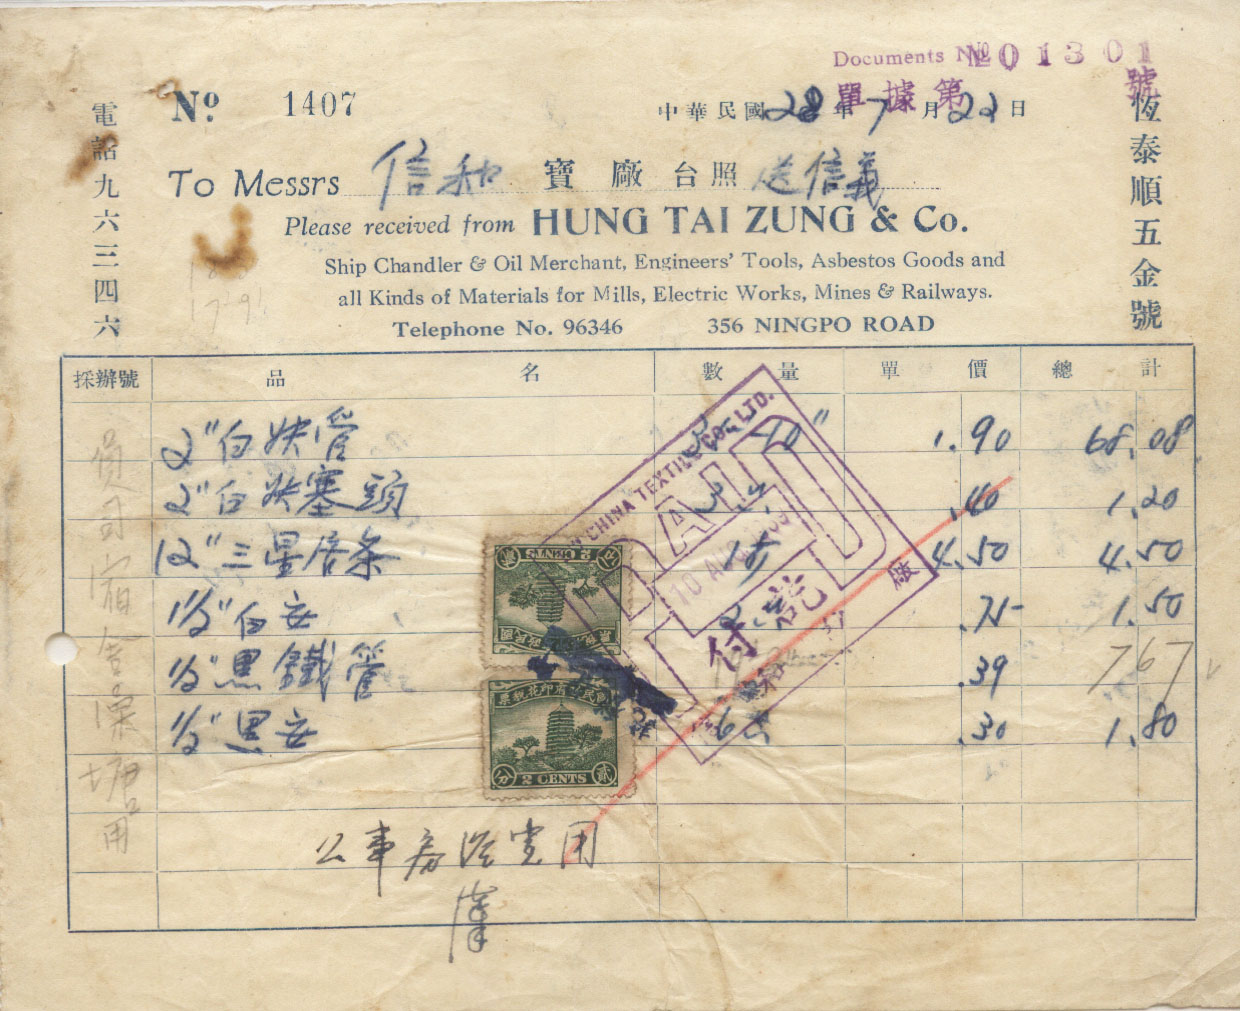 Documents № 01301
單據第 號
№ 1407
中華民國 28 年 7 月 22 日
恆泰順五金號
電話九六三四六
To Messrs 信和 寶廠台照 送信義
Please received from HUNG TAI ZUNG & Co.
Ship Chandler & Oil Merchant, Engineers' Tools, Asbestos Goods and
all Kinds of Materials for Mills, Electric Works, Mines & Railways.
Telephone No. 96346 356 NINGPO ROAD
採辦號 品名 數量 單價 總計
2" 白鉄管 1.90 68.08
2" 白鉄塞頭 .40 1.20
12" 三星 4.50 4.50
1½" 白 .75 1.50
½" 黑鐵管 .39 7.67
½" 黑 .30 1.80
員司宿舍澡塘用
公事房 用
CHINA TEXTILE CO., LTD.
PAID
付訖
廠
2 CENTS
2 CENTS
貳 分